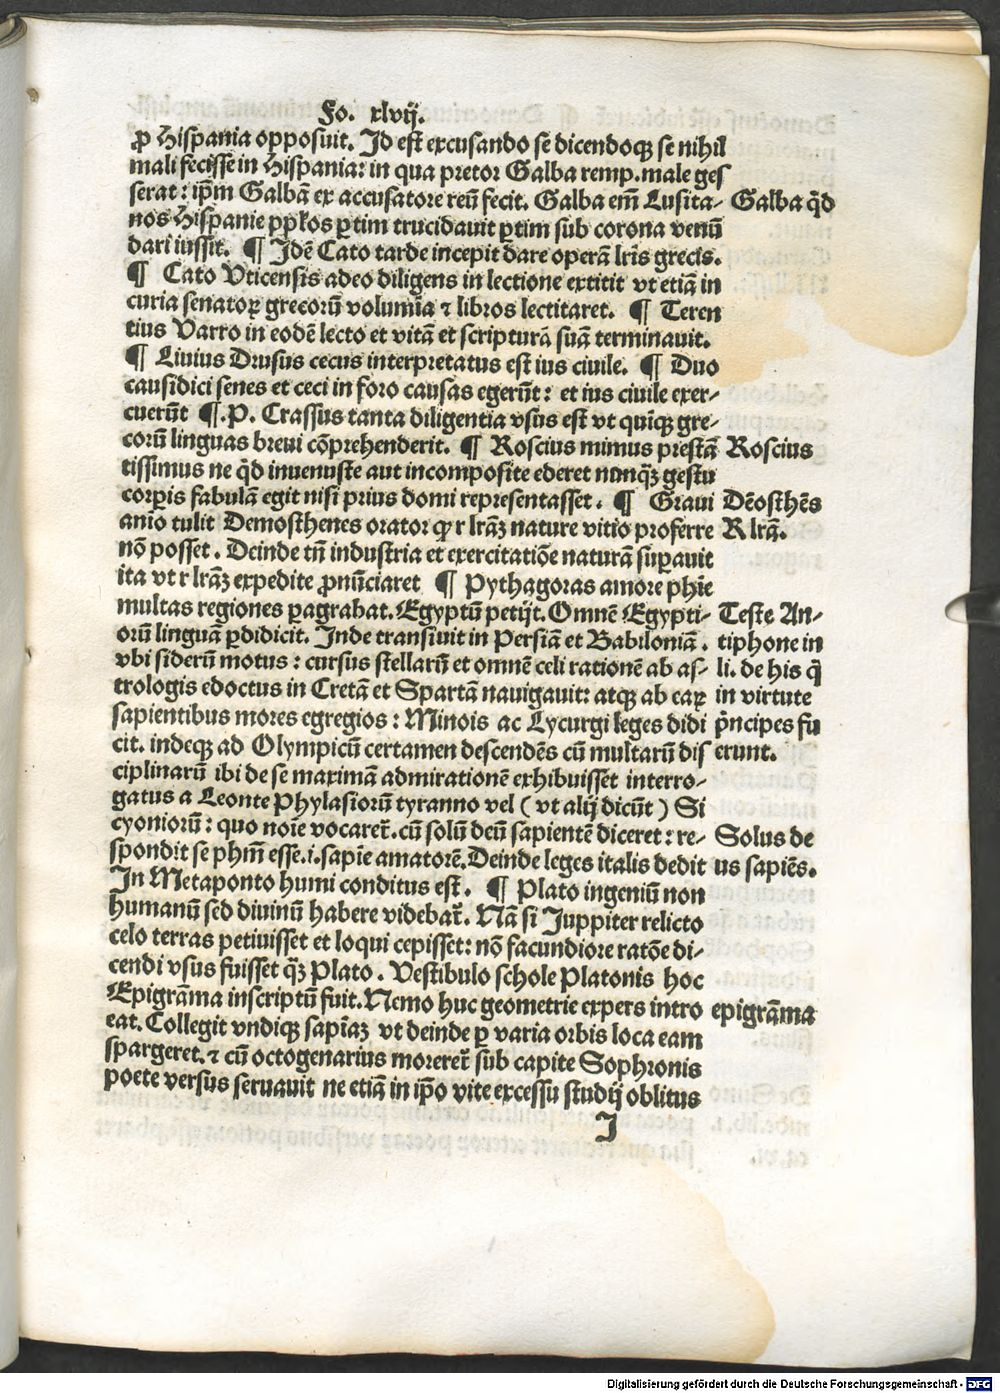 Fo. xlvij.
ꝓ Hispania opposuit. Id est excusando se dicendoqꝫ se nihil
mali fecisse in Hispania: in qua pretor Galba remp. male ges
serat: ip̄m Galbā ex accusatore reū fecit. Galba em̄ Lusita-
Galba q̇d
nos Hispanie pp̄los ꝑtim trucidauit ꝑtim sub corona venū
dari iussit. ¶ Idē Cato tarde incepit dare operā lr̄is grecis.
¶ Cato Vticensis adeo diligens in lectione extitit vt etiā in
curia senatoꝝ grecorū volumīa ⁊ libros lectitaret. ¶ Teren
tius Varro in eodē lecto et vitā et scripturā suā terminauit.
¶ Liuius Drusus cecus interpretatus est ius ciuile. ¶ Duo
causidici senes et ceci in foro causas egerūt: et ius ciuile exer-
cuerūt ¶.P. Crassus tanta diligentia vsus est vt quīqꝫ gre-
corū linguas breui cōprehenderit. ¶ Roscius mimus prestā
Roscius
tissimus ne q̇d inuenuste aut incomposite ederet nunq̄ꝫ gestu
corꝑis fabulā egit nisi prius domi representasset. ¶ Graui
Dēosthēs
anīo tulit Demosthenes orator ꝙ r lr̄aꝫ nature vitio proferre
R lr̄ā.
nō posset. Deinde tn̄ industria et exercitatiōe naturā suꝑauit
ita vt r lr̄aꝫ expedite ꝓnūciaret ¶ Pythagoras amore phīe
multas regiones ꝑagrabat. Egyptū petijt. Omnē Egypti-
Teste An-
orū linguā ꝑdidicit. Inde transiuit in Persiā et Babiloniā.
tiphone in
vbi siderū motus: cursus stellarū et omnē celi rationē ab as-
li. de his q̄
trologis edoctus in Cretā et Spartā nauigauit: atqꝫ ab eaꝝ
in virtute
sapientibus mores egregios: Minois ac Lycurgi leges didi
p̄ncipes fu
cit. indeqꝫ ad Olympicū certamen descendēs cū multarū dis
erunt.
ciplinarū ibi de se maximā admirationē exhibuisset interro-
gatus a Leonte Phylasiorū tyranno vel ( vt alij dicūt ) Si
cyoniorū: quo noīe vocaret̄. cū solū deū sapientē diceret: re-
Solus de
spondit se phm̄ esse .i. sapīe amatorē. Deinde leges italis dedit
us sapiēs.
In Metaponto humi conditus est. ¶ Plato ingeniū non
humanū sed diuinū habere videbat̄. Nā si Iuppiter relicto
celo terras petiuisset et loqui cepisset: nō facundiore ratōe di-
cendi vsus fuisset q̄ꝫ Plato. Vestibulo schole Platonis hoc
Epigrāma inscriptū fuit. Nemo huc geometrie expers intro
epigrāma
eat. Collegit vndiqꝫ sapīaꝫ vt deinde ꝑ varia orbis loca eam
spargeret. ⁊ cū octogenarius moreret̄ sub capite Sophronis
poete versus seruauit ne etiā in ip̄o vite excessu studij oblitus
I
Digitalisierung gefördert durch die Deutsche Forschungsgemeinschaft - DFG